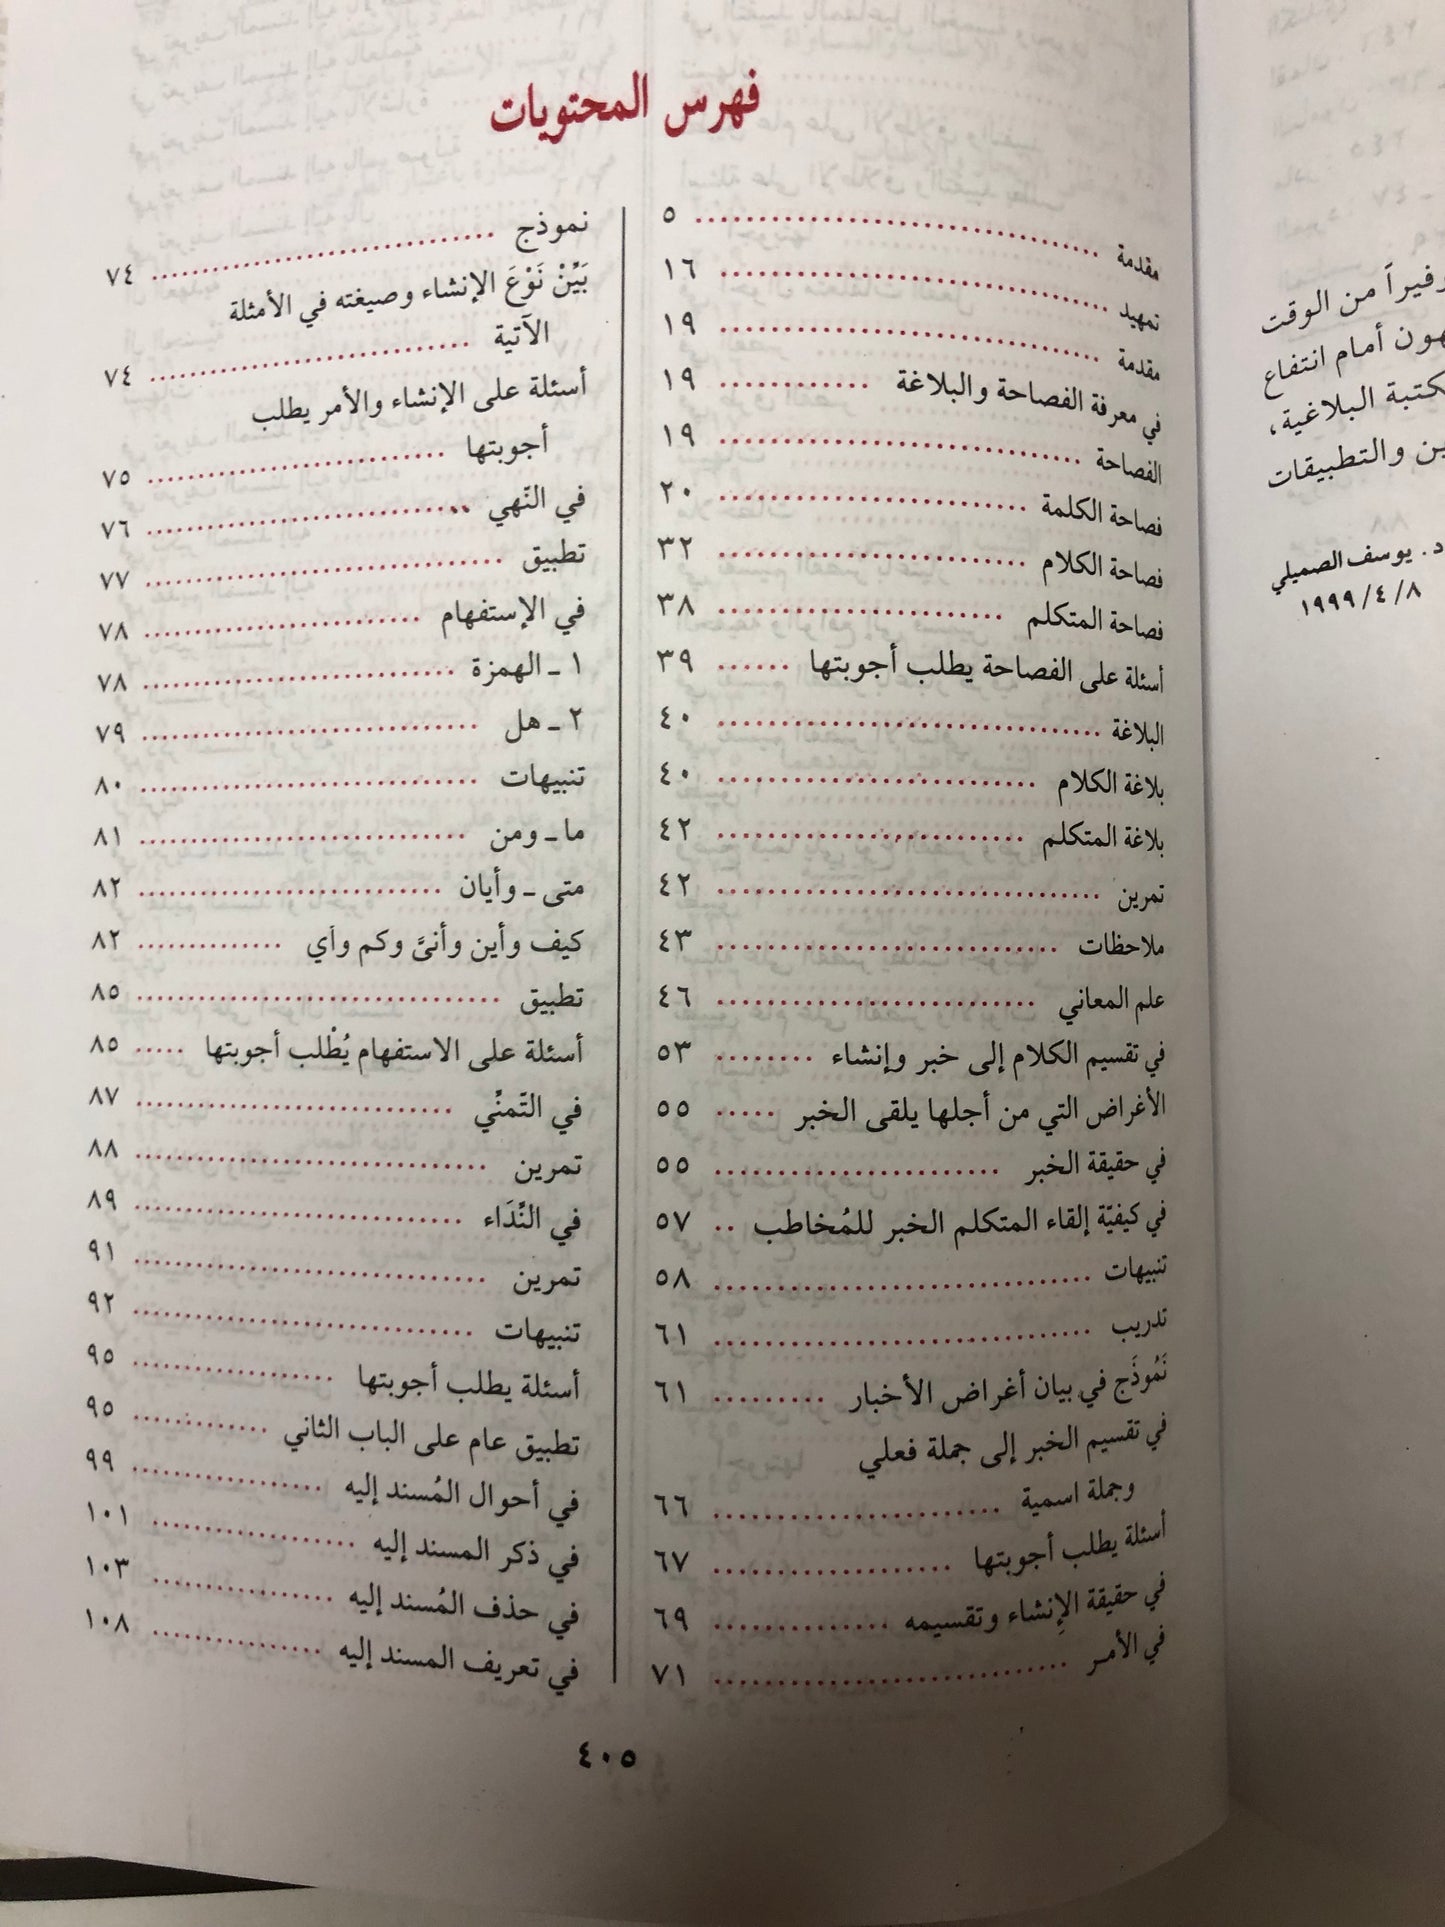 فهرس المحتويات
مقدمة ٥
تمهيد ١٦
مقدمة ١٩
في معرفة الفصاحة والبلاغة ١٩
الفصاحة ١٩
فصاحة الكلمة ٢٠
فصاحة الكلام ٣٢
فصاحة المتكلم ٣٨
أسئلة على الفصاحة يطلب أجوبتها ٣٩
البلاغة ٤٠
بلاغة الكلام ٤٠
بلاغة المتكلم ٤٢
تمرين ٤٢
ملاحظات ٤٣
علم المعاني ٤٦
في تقسيم الكلام إلى خبر وإنشاء ٥٣
الأغراض التي من أجلها يلقى الخبر ٥٥
في حقيقة الخبر ٥٥
في كيفيّة إلقاء المتكلم الخبر للمُخاطب ٥٧
تنبيهات ٥٨
تدريب ٦١
نَمُوذَج في بيان أغراض الأخبار ٦١
في تقسيم الخبر إلى جملة فعلي
وجملة اسمية ٦٦
أسئلة يطلب أجوبتها ٦٧
في حقيقة الإِنشاء وتقسيمه ٦٩
في الأمـر ٧١
نموذج ٧٤
بَيِّنْ نَوْعَ الإنشاء وصيغته في الأمثلة
الآتية ٧٤
أسئلة على الإنشاء والأمر يطلب
أجوبتها ٧٥
في النّهي ٧٦
تطبيق ٧٧
في الإستفهام ٧٨
١ ـ الهمزة ٧٨
٢ ـ هل ٧٩
تنبيهات ٨٠
ما ـ ومن ٨١
متى ـ وأيان ٨٢
كيف وأين وأنىَّ وكم وأي ٨٢
تطبيق ٨٥
أسئلة على الاستفهام يُطْلب أجوبتها ٨٥
في التّمنِّي ٨٧
تمرين ٨٨
في النِّدَاء ٨٩
تمرين ٩١
تنبيهات ٩٢
أسئلة يطلب أجوبتها ٩٥
تطبيق عام على الباب الثاني ٩٥
في أحوال المُسند إليه ٩٩
في ذكر المسند إليه ١٠١
في حذف المُسند إليه ١٠٣
في تعريف المسند إليه ١٠٨
٤٠٥
من الوقت
أمام انتفاع
البلاغية،
والتطبيقات
د. يوسف الصميلي
١٩٩٩/٤/٨